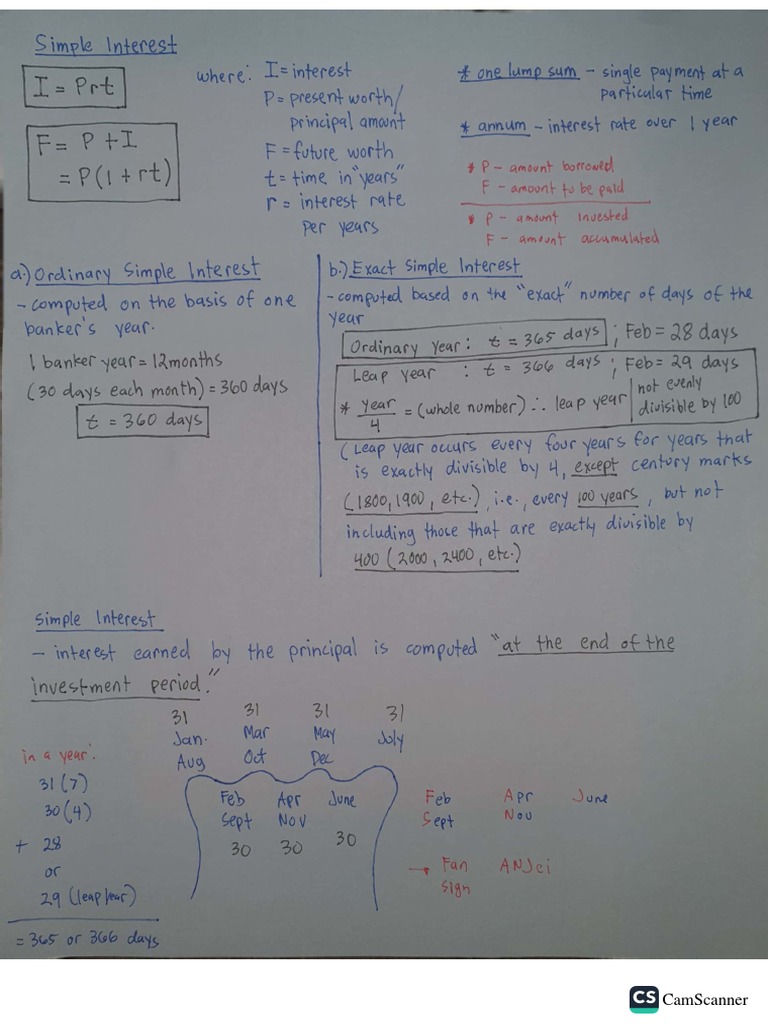 Simple Interest
I = Prt
F = P + I
= P(1 + rt)
where: I = interest
P = present worth/
principal amount
F = future worth
t = time in "years"
r = interest rate
per years
* one lump sum - single payment at a
particular time
* annum - interest rate over 1 year
* P - amount borrowed
F - amount to be paid
* P - amount invested
F - amount accumulated
a.) Ordinary Simple Interest
- computed on the basis of one
banker's year.
1 banker year = 12 months
(30 days each month) = 360 days
t = 360 days
b.) Exact Simple Interest
- computed based on the "exact" number of days of the
year
Ordinary year: t = 365 days ; Feb = 28 days
Leap year : t = 366 days ; Feb = 29 days
* year/4 = (whole number) ∴ leap year | not evenly
divisible by 100
(Leap year occurs every four years for years that
is exactly divisible by 4, except century marks
(1800, 1900, etc.), i.e., every 100 years, but not
including those that are exactly divisible by
400 (2000, 2400, etc.)
Simple Interest
- interest earned by the principal is computed "at the end of the
investment period."
in a year:
31(7)
30(4)
+ 28
or
29 (leap year)
= 365 or 366 days
31 31 31 31
Jan. Mar May July
Aug Oct Dec
Feb Apr June
Sept Nov
30 30 30
Feb Apr June
Sept Nov
→ Fan ANJei
Sign
CS CamScanner